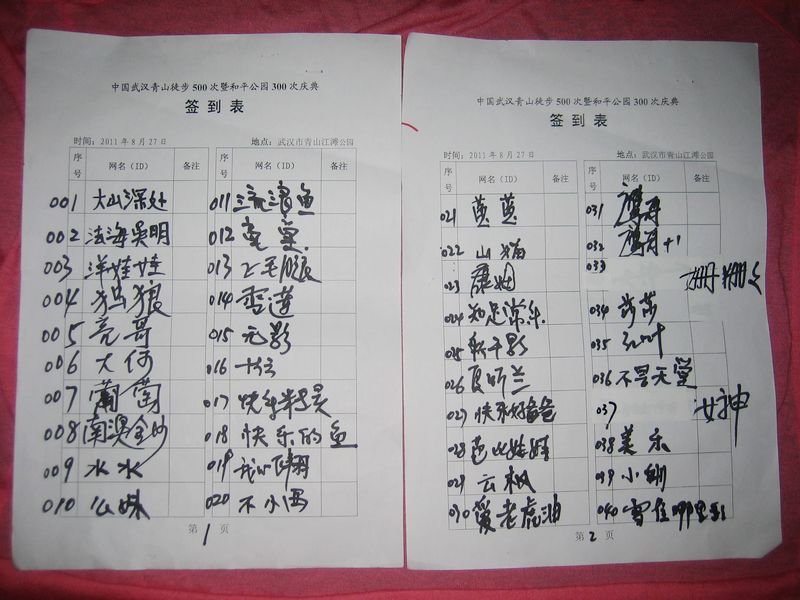 中国武汉青山徒步500次暨和平公园300次庆典
签到表
时间：2011年8月27日 地点：武汉市青山江滩公园
序号 网名（ID） 备注 序号 网名（ID） 备注
001 大山深处
002 法海吴明
003 洋娃娃
004 独狼
005 亮哥
006 大何
007 葡萄
008 南澳金沙
009 水水
010 么妹
011 三流清鱼
012
013
014 雪莲
015 无影
016
017 快乐精灵
018 快乐的鱼
019 我心飞翔
020 不小酒
第1页
中国武汉青山徒步500次暨和平公园300次庆典
签到表
时间：2011年8月27日 地点：武汉市青山江滩公园
序号 网名（ID） 备注 序号 网名（ID） 备注
021
022 山猫
023 康姐
024 知足常乐
025
026 夏听兰
027 快乐好爸爸
028 芭比娃娃
029 云枫
030 爱老虎油
031
032 +1
033 珊珊
034 莎莎
035 红叶
036 不是天堂
037 女神
038 美乐
039 小
040 雪佳
第2页